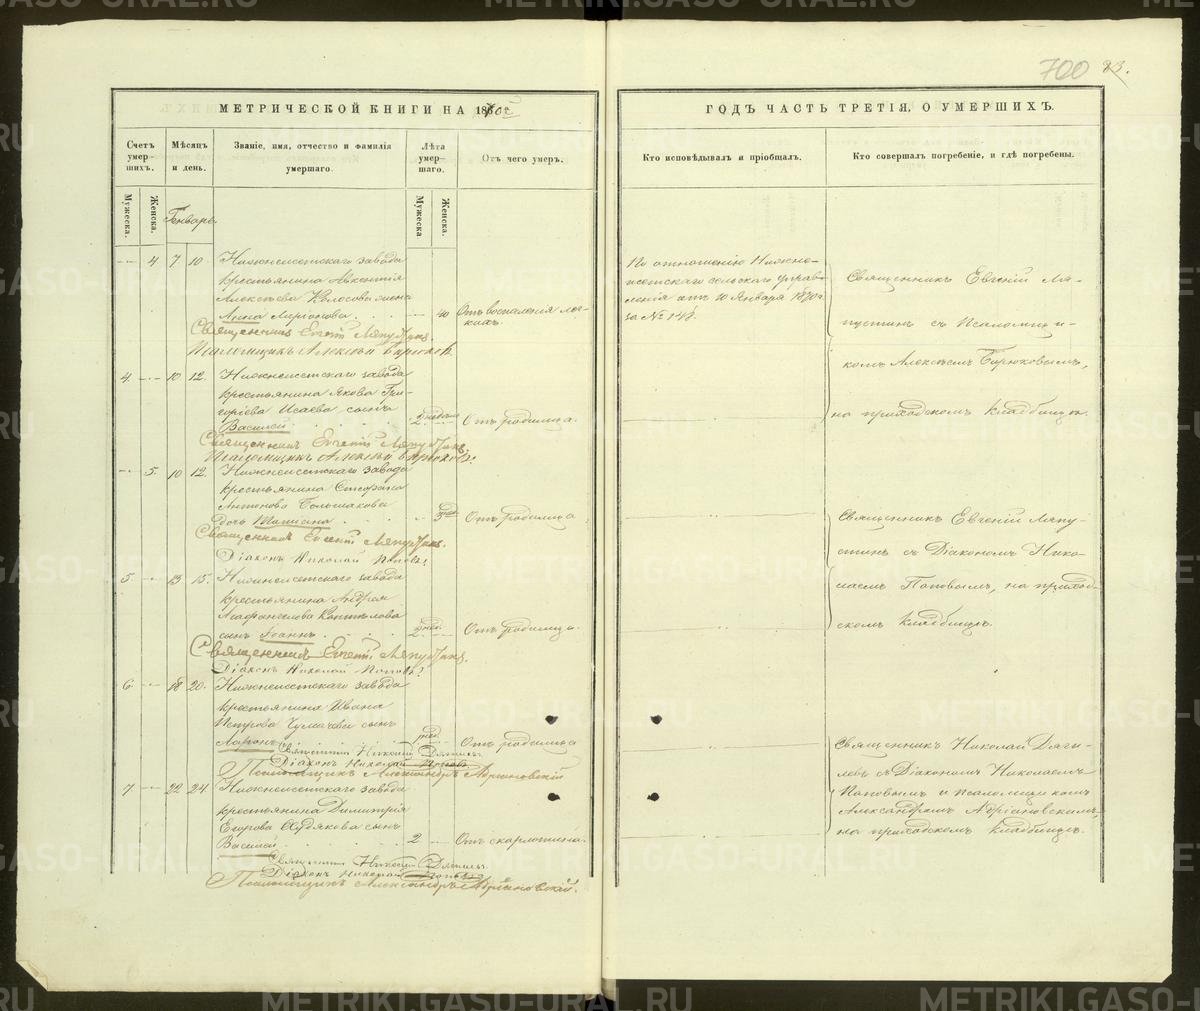 700 83.
МЕТРИЧЕСКОЙ КНИГИ НА 1870й
ГОДЪ ЧАСТЬ ТРЕТІЯ, О УМЕРШИХЪ.
Счетъ умер-шихъ.
Мѣсяцъ и день.
Званіе, имя, отчество и фамилія умершаго.
Лѣта умер-шаго.
Отъ чего умеръ.
Кто исповѣдывалъ и пріобщалъ.
Кто совершалъ погребеніе, и гдѣ погребены.
Мужеска. Женска.
Мужеска. Женска.
Январь
4 7 10 Нижнеисетскаго завода
крестьянина Авксентія
Алексѣева Колосова жена
Анна Ларіонова 40 Отъ воспаленія лег-
кихъ.
Священникъ Евгеній Ляпустинъ.
Псаломщикъ Алексѣй Бирюковъ.
По отношенію Нижне-
исетскаго сельскаго управ-
ленія отъ 10 Января 1870 г.
за № 142.
Священникъ Евгеній Ля-
пустинъ съ Псаломщи-
комъ Алексѣемъ Бирюковымъ,
на приходскомъ кладбищѣ.
4. 10 12. Нижнеисетскаго завода
крестьянина Якова Гри-
горіева Исаева сынъ
Василій 2 недели Отъ родимца.
Священникъ Евгеній Ляпустинъ.
Псаломщикъ Алексѣй Бирюковъ.
5. 10 12. Нижнеисетскаго завода
крестьянина Стефана
Антонова Большакова
дочь Татіана 3 нед. Отъ родимца
Священникъ Евгеній Ляпустинъ.
Діаконъ Николай Поповъ.
Священникъ Евгеній Ляпу-
стинъ съ Діакономъ Нико-
лаемъ Поповымъ, на приход-
скомъ кладбищѣ.
5. 13 15. Нижнеисетскаго завода
крестьянина Андрея
Агафангелова Коптѣлова
сынъ Іоаннъ 2 нед. Отъ родимца.
Священникъ Евгеній Ляпустинъ.
Діаконъ Николай Поповъ.
6 18 20. Нижнеисетскаго завода
крестьянина Ивана
Петрова Чумачева сынъ
нед. Отъ родимца
Священникъ Николай Дягилевъ
Діаконъ Николай Поповъ
Псаломщикъ Александръ Адріановскій
Священникъ Николай Дяги-
левъ съ Діакономъ Николаемъ
Поповымъ и псаломщикомъ
Александромъ Адріановскимъ,
на приходскомъ кладбищѣ.
7 22 24. Нижнеисетскаго завода
крестьянина Димитрія
Егорова Худякова сынъ
Василій 2 Отъ скарлатина.
Священникъ Николай Дягилевъ.
Діаконъ Николай Поповъ
Псаломщикъ Александръ Адріановскій.
METRIKI.GASO-URAL.RU